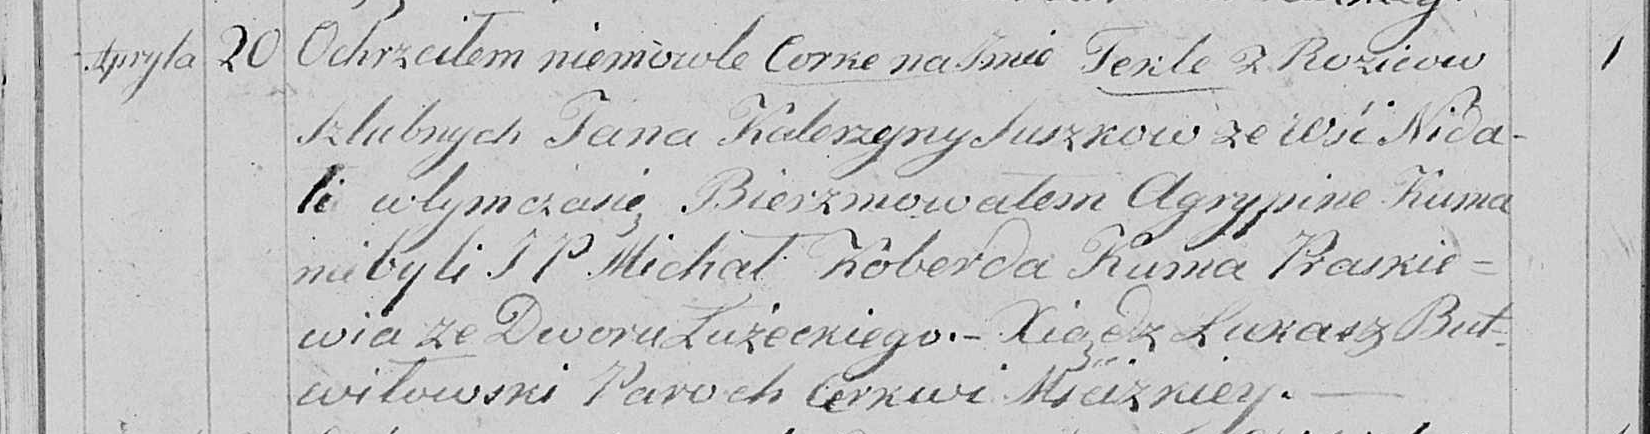 Apryla 20 Ochrzciłem niemowle Corke na Jmie Tekle z Rozicow 1
szlubnych Jana Katerzyny Suszkow ze wśi Nida-
li w tym czasię Bierzmowałem Agrypine Kuma
mi byli J P Michał Koberda Kuma Praskie=
wia ze Dworu Łużeckiego.- Xiądz Łukasz But-
wiłowski Paroch Cerkwi Mściżkiey.